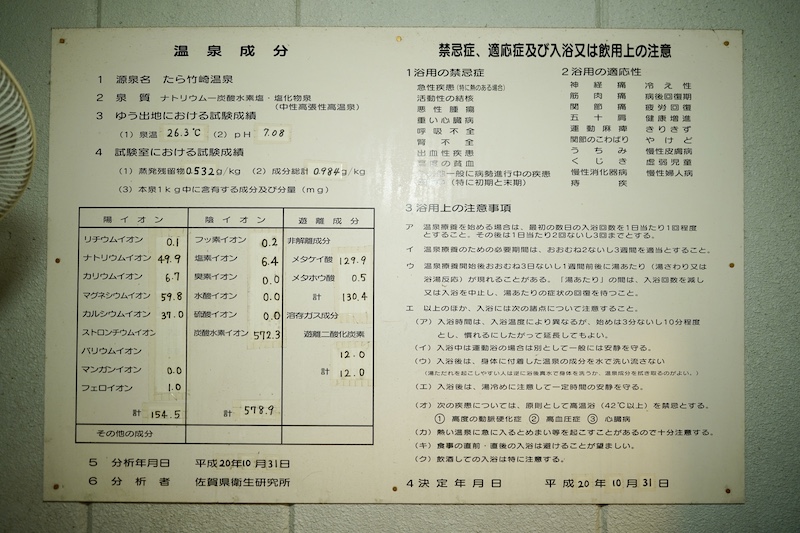 温泉成分
1 源泉名 たら竹崎温泉
2 泉質 ナトリウムー炭酸水素塩・塩化物泉
(中性高張性高温泉)
3 ゆう出地における試験成績
(1) 泉温 26.3℃ (2) pH 7.08
4 試験室における試験成績
(1) 蒸発残留物0.532g/kg (2) 成分総計0.984g/kg
(3) 本泉1kg中に含有する成分及び分量 (mg)
陽イオン 陰イオン 遊離成分
リチウムイオン 0.1 フッ素イオン 0.2 非解離成分
ナトリウムイオン 49.9 塩素イオン 6.4 メタケイ酸 129.9
カリウムイオン 6.7 臭素イオン 0.0 メタホウ酸 0.5
マグネシウムイオン 59.8 水酸イオン 0.0 計 130.4
カルシウムイオン 37.0 硫酸イオン 0.0 溶存ガス成分
ストロンチウムイオン 炭酸水素イオン 572.3 遊離二酸化炭素
バリウムイオン 12.0
マンガンイオン 0.0 計 12.0
フェロイオン 1.0
計 154.5 計 578.9
その他の成分
5 分析年月日 平成20年10月31日
6 分析者 佐賀県衛生研究所
禁忌症、適応症及び入浴又は飲用上の注意
1浴用の禁忌症
急性疾患(特に熱のある場合)
活動性の結核
悪性腫瘍
重い心臓病
呼吸不全
腎不全
出血性疾患
の貧血
一般に病勢進行中の疾患
(特に初期と末期)
2浴用の適応性
神経痛 冷え性
筋肉痛 病後回復期
関節痛 疲労回復
五十肩 健康増進
運動麻痺 きりきず
関節のこわばり やけど
うちみ 慢性皮膚病
くじき 虚弱児童
慢性消化器病 慢性婦人病
痔疾
3浴用上の注意事項
ア 温泉療養を始める場合は、最初の数日の入浴回数を1日当たり1回程度
とすること。その後は1日当たり2回ないし3回までとする。
イ 温泉療養のための必要期間は、おおむね2ないし3週間を適当とすること。
ウ 温泉療養開始後おおむね3日ないし1週間前後に湯あたり(湯さわり又は
浴湯反応)が現れることがある。「湯あたり」の間は、入浴回数を減し
又は入浴を中止し、湯あたりの症状の回復を待つこと。
エ 以上のほか、入浴には次の諸点について注意すること。
(ア)入浴時間は、入浴温度により異なるが、始めは3分ないし10分程度
とし、慣れるにしたがって延長してもよい。
(イ)入浴中は運動浴の場合は別として一般には安静を守る。
(ウ)入浴後は、身体に付着した温泉の成分を水で洗い流さない
(湯ただれを起こしやすい人は逆に浴後真水で身体を洗うか、温泉成分を拭き取るのがよい。)
(エ)入浴後は、湯冷めに注意して一定時間の安静を守る。
(オ)次の疾患については、原則として高温浴(42℃以上)を禁忌とする。
① 高度の動脈硬化症 ② 高血圧症 ③ 心臓病
(カ)熱い温泉に急に入るとめまい等を起こすことがあるので十分注意する。
(キ)食事の直前・直後の入浴は避けることが望ましい。
(ク)飲酒しての入浴は特に注意する。
4決定年月日 平成20年10月31日